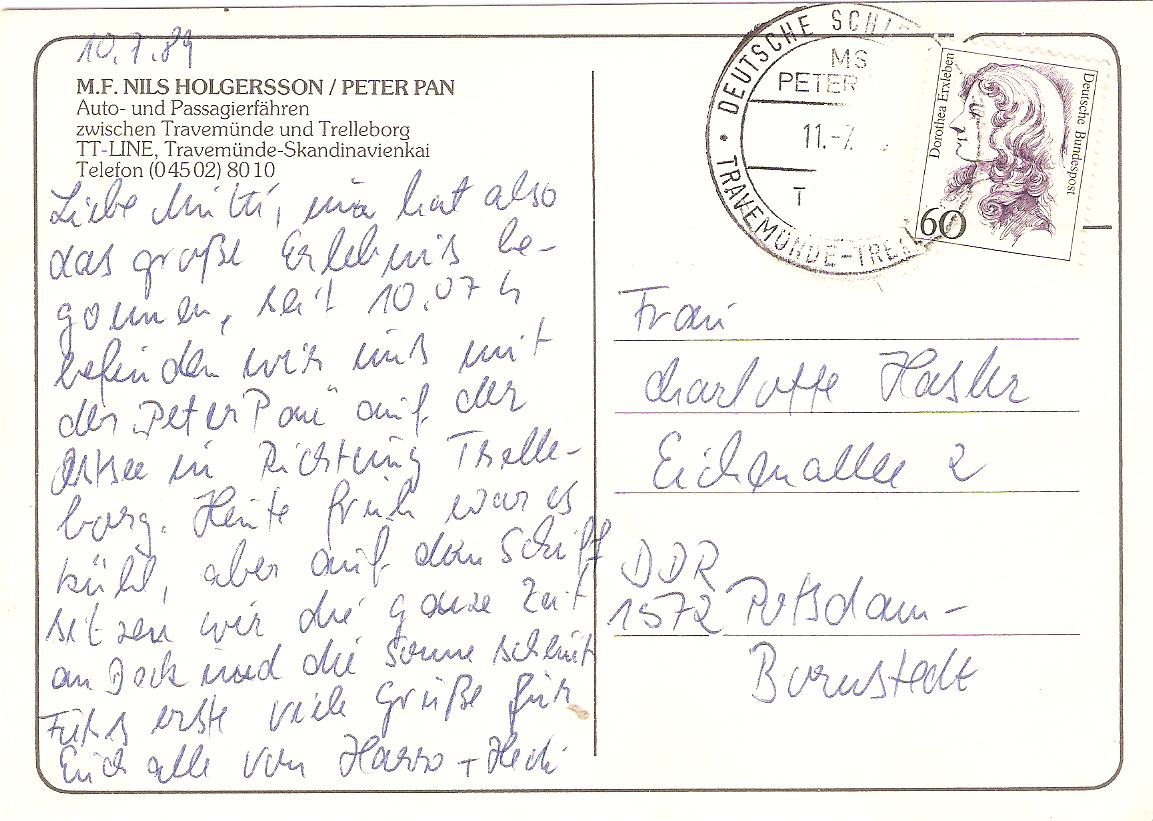 10.7.89
M.F. NILS HOLGERSSON / PETER PAN
Auto- und Passagierfähren
zwischen Travemünde und Trelleborg
TT-LINE, Travemünde-Skandinavienkai
Telefon (0 45 02) 80 10
Liebe Mutti, nun hat also
das große Erlebnis be-
gonnen, seit 10.07 h
befinden wir uns mit
der "Peter Pan" auf der
Ostsee in Richtung Trelle-
borg. Heute früh war es
kühl, aber auf dem Schiff
sitzen wir die ganze Zeit
an Deck und die Sonne scheint
Fürs erste viele Grüße für
Euch alle von Harro + Hedi
DEUTSCHE SCHI
MS
PETER
11.-7.
T
TRAVEMÜNDE-TRELL
Dorothea Erxleben
Deutsche Bundespost
60
Frau
Charlotte Hasler
Eichenallee 2
DDR
1572 Potsdam-
Bornstedt